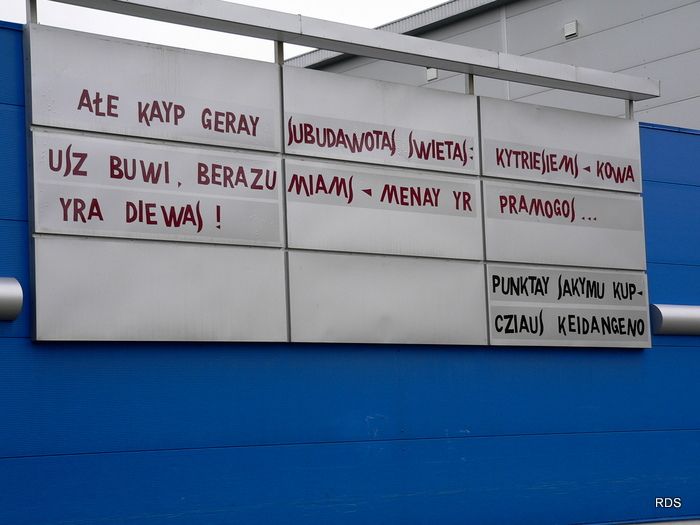 AŁE KAYP GERAY
USZ BUWI, BERAZU
YRA DIEWAS !
SUBUDAWOTAS SWIETAS:
MIAMS - MENAY YR
KYTRIESIEMS - KOWA
PRAMOGOS ...
PUNKTAY SAKYMU KUP-
CZIAUS KEIDANGENO
RDS